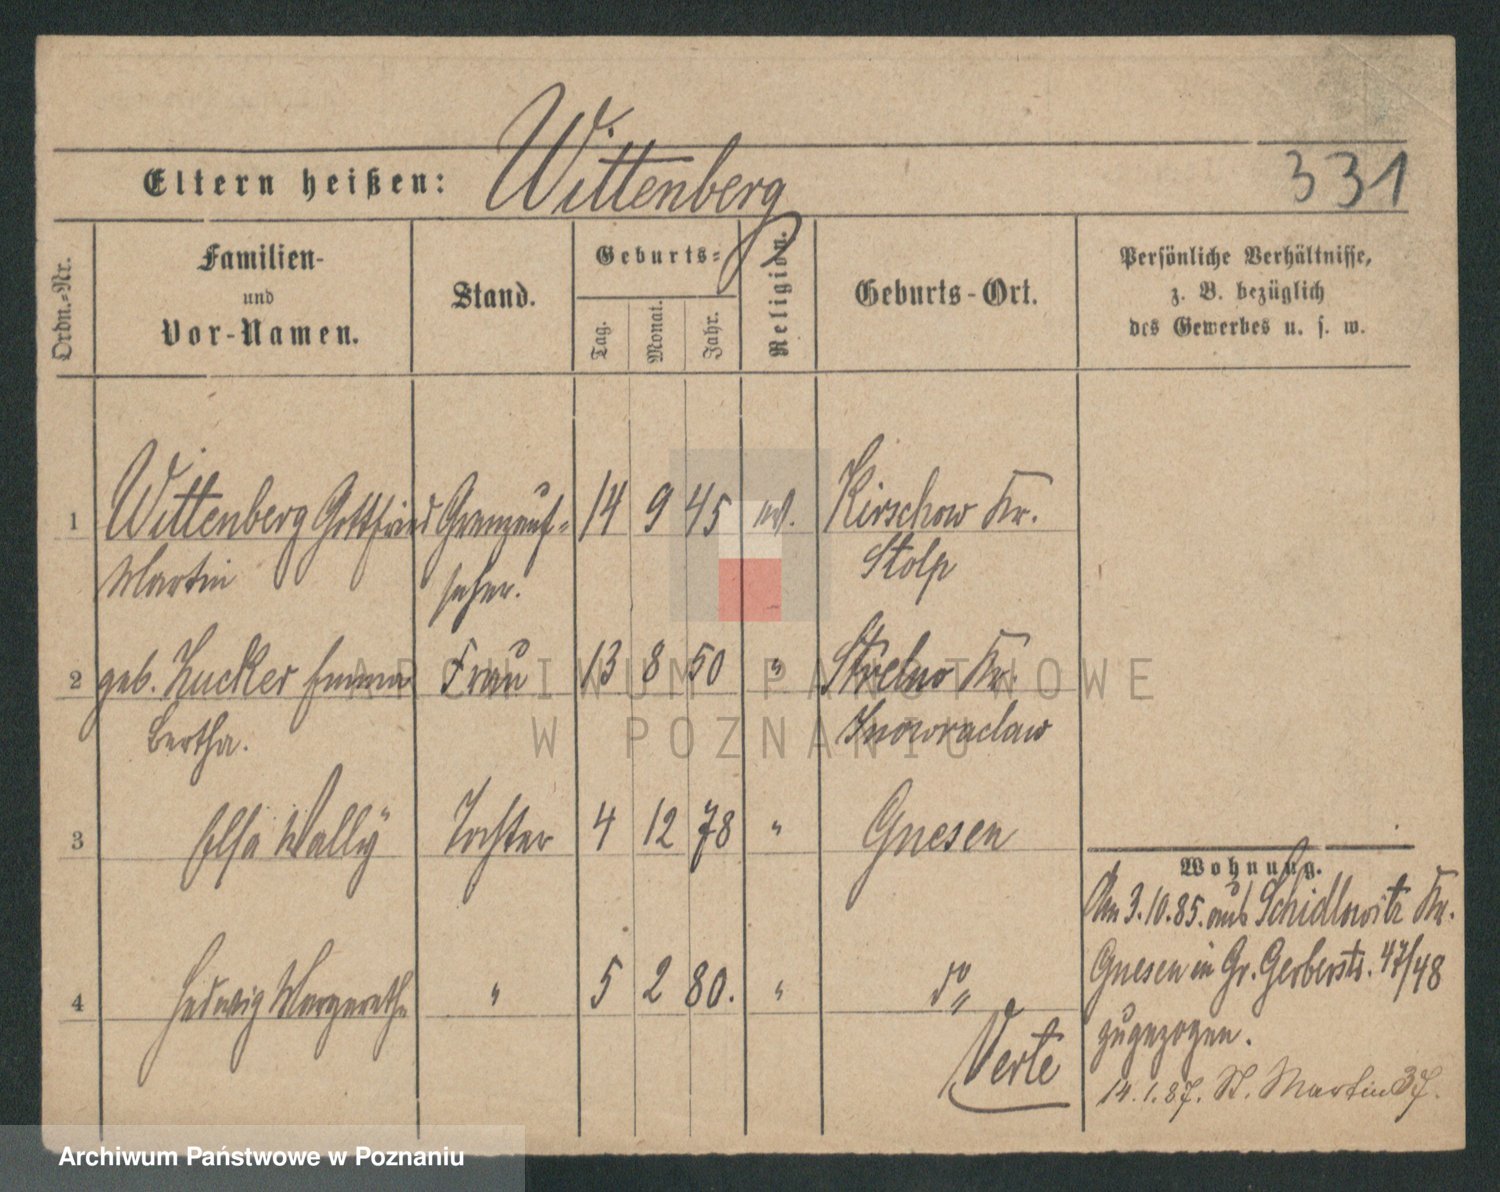 331
Eltern heißen: Wittenberg
Ordn.-Nr.
Familien-
und
Vor-Namen.
Stand.
Geburts-
Tag.
Monat.
Jahr.
Religion.
Geburts-Ort.
Persönliche Verhältnisse,
z. B. bezüglich
des Gewerbes u. s. w.
1 Wittenberg Gottfried Grenzauf- 14 9 45 ev. Kirschow Kr.
Martin seher. Stolp
2 geb. Zucker Emma Frau 13 8 50 " Strelno Kr.
Bertha. Inowraclaw
3 Elsa Wally Tochter 4 12 78 " Gnesen
4 Hedwig Margarethe " 5 2 80. " do
Verte
Wohnung.
Am 3.10.85. aus Schidlowitz Kr.
Gnesen in Gr. Gerberstr. 47/48
zugezogen.
14.1.87. St. Martin 37.
ARCHIWUM PAŃSTWOWE
W POZNANIU
Archiwum Państwowe w Poznaniu